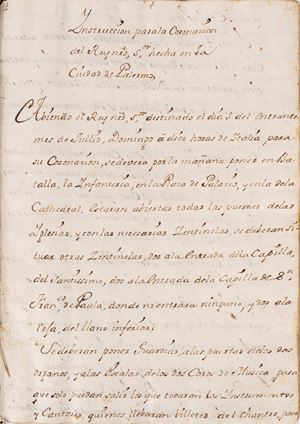 Instruccion para la Coronacion
del Rey nrō, S.ʳ hecha en la
Ciudad de Palermo,
Abiendo el Rey nrō, S.ʳ destinado el dia 3 del entrante
mes de Jullio, Domingo à diez horas de Italia, para
su Coronacion, se devera por la mañana poner en Ba-
talla, la Infanteria, en la Plaza de Palacio, y en la de la
Cathedral, Estaran abiertas todas las puertas de las
Iglesias, y con las necesarias Zentinelas, se deveran si-
tuar otras Zentinelas, dos a la Entrada de la Capilla,
del Santissimo, dos à la Entrada de la Capilla de S.ⁿ
Fran.ᶜᵒ de Paula, donde no entrarà ninguno, y dos a la
del llano inferior.
Se deveran poner Guardias, a las puertas de los dos
organos, y a las Escalas, de los dos Coros de Musica, para
que solo puedan salir los que tocaràn los Instrumentos
y Cantores, quienes llebaràn billetes del chantre, para